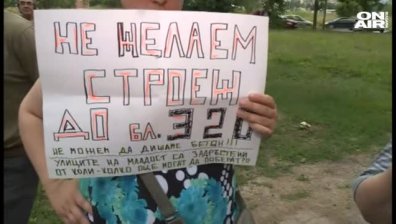 ON
AIR
НЕ ЖЕЛАЕМ
СТРОЕЖ
ДО БЛ. 320
НЕ МОЖЕМ ДА ДИШАМЕ БЕТОН!!!
УЛИЦИТЕ НА МЛАДОСТ СА ЗАДРЪСТЕНИ
ОТ КОЛИ-КОЛКО ОЩЕ МОГАТ ДА ПОБЕРАТ?